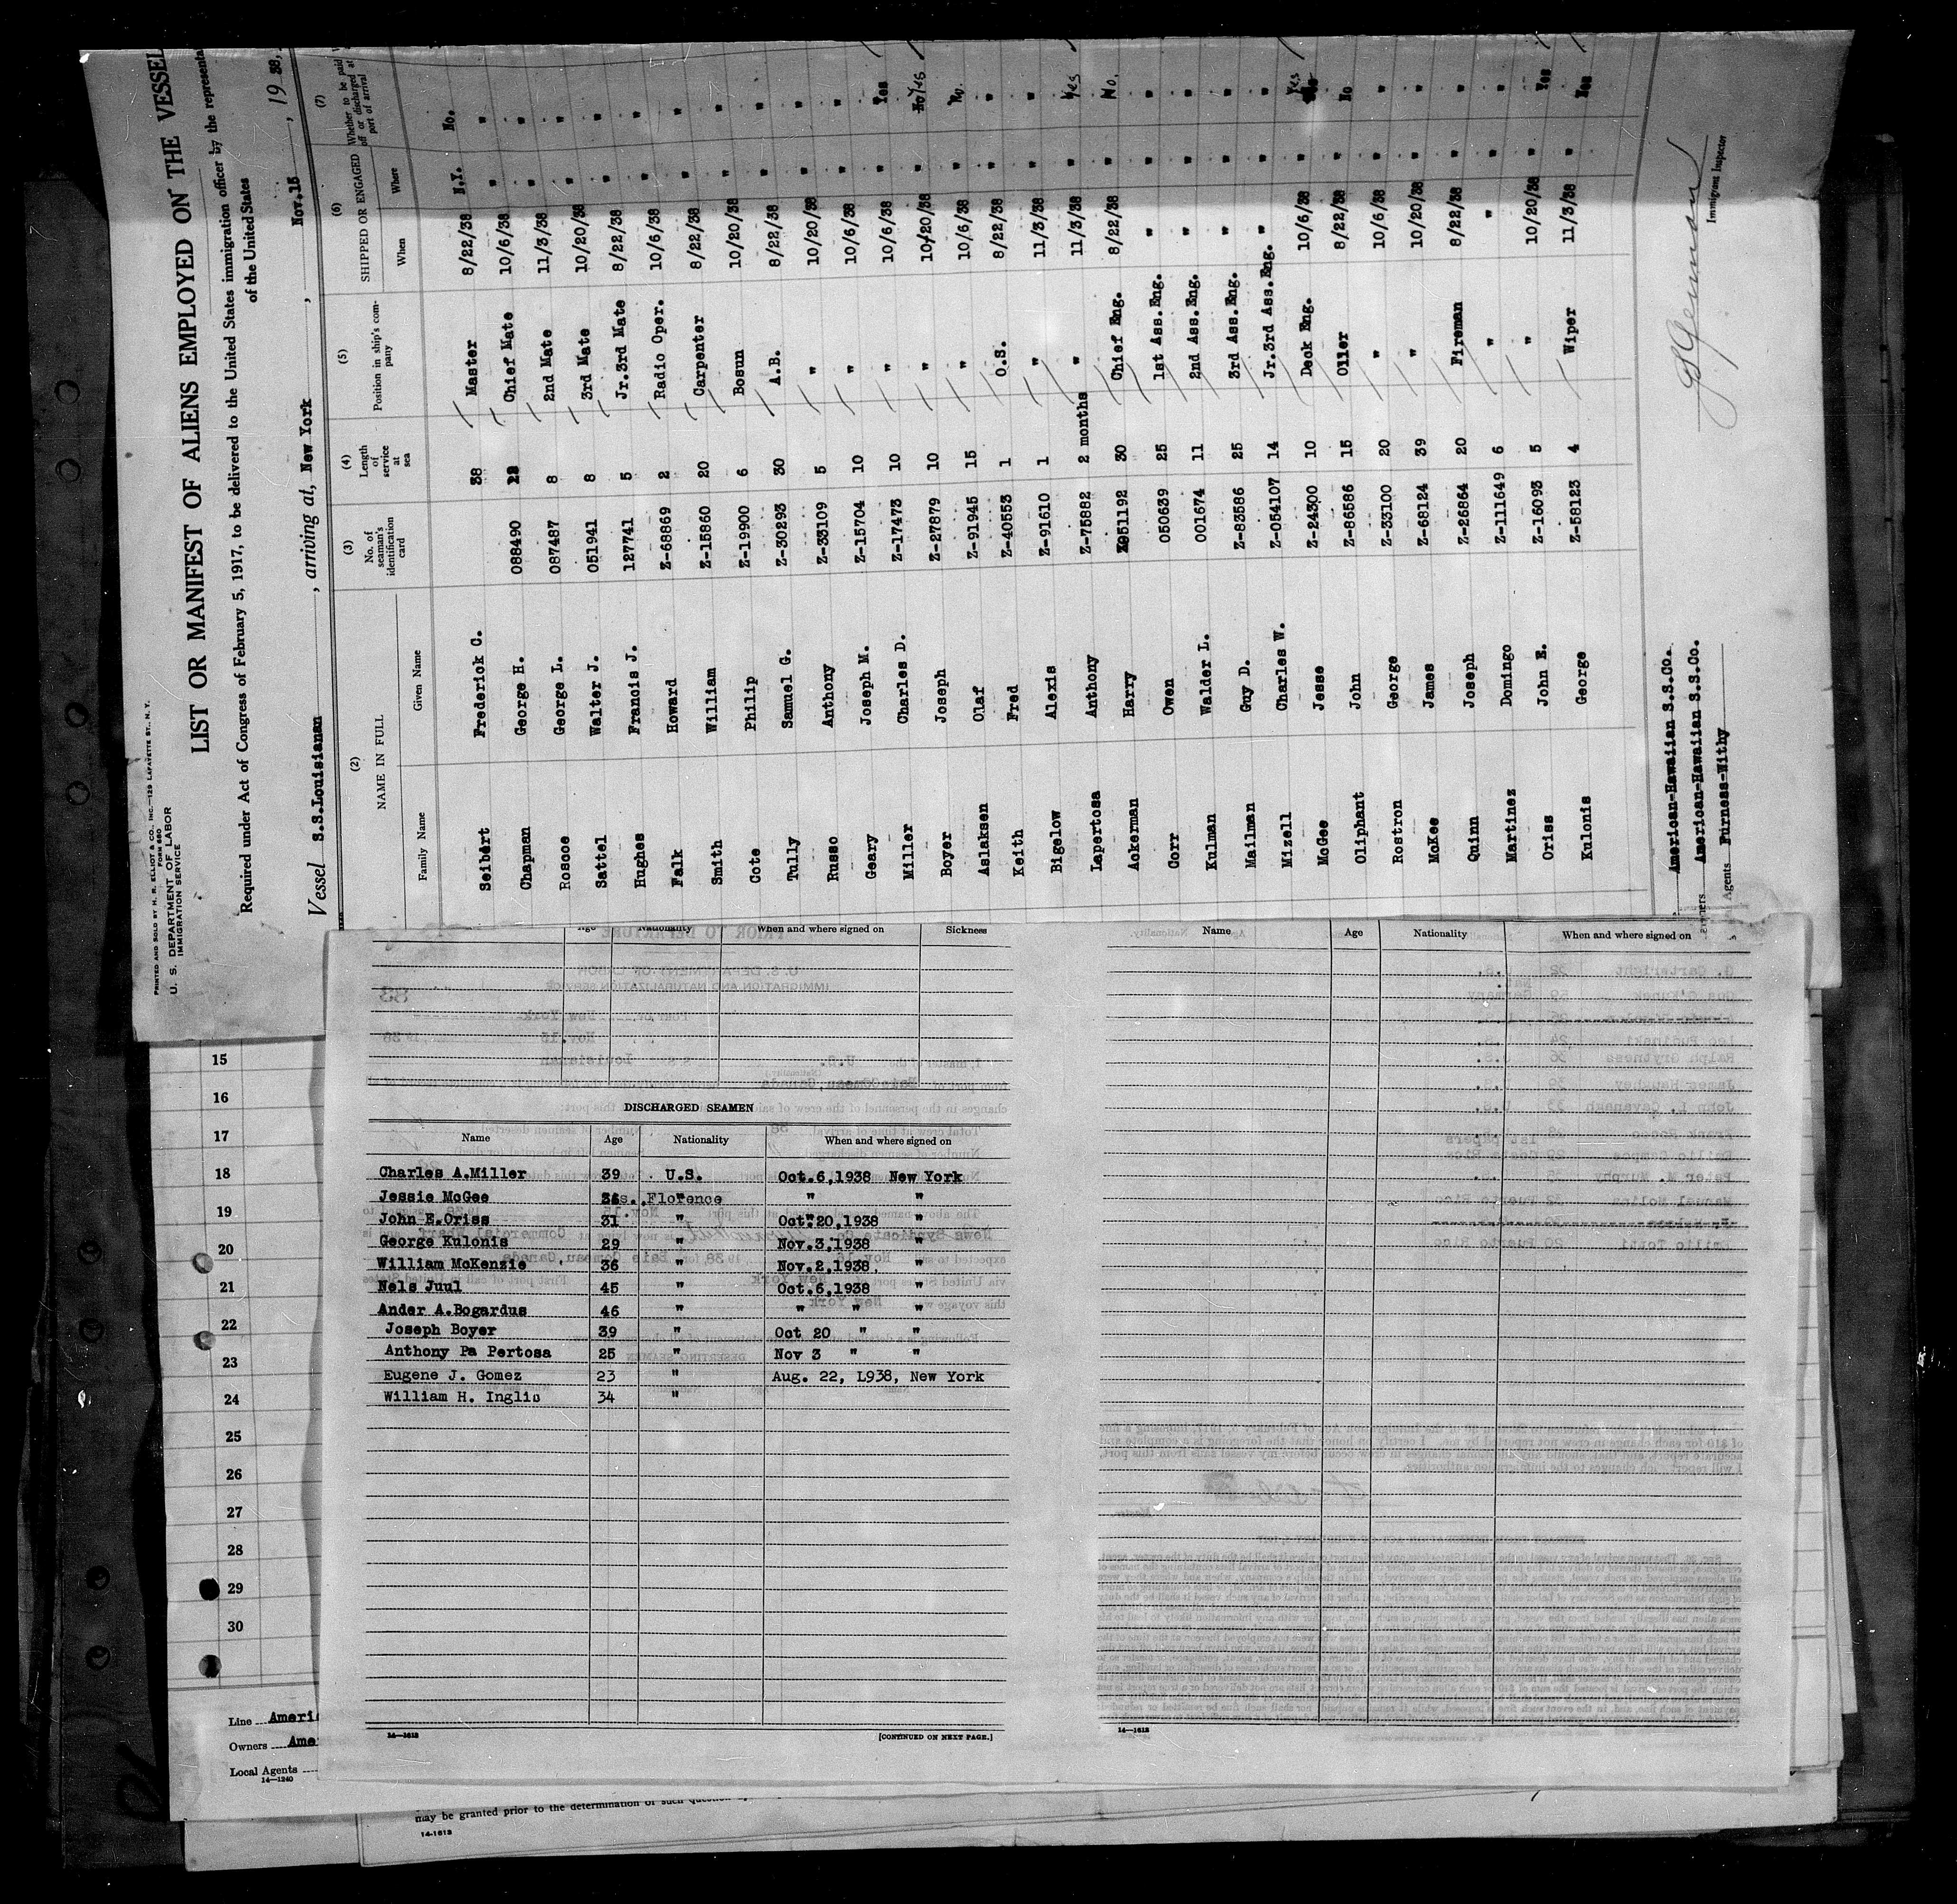 PRINTED AND SOLD BY H. R. ELLIOT & CO., INC.—129 LAFAYETTE ST., N. Y.
FORM 680
U. S. DEPARTMENT OF LABOR
IMMIGRATION SERVICE
LIST OR MANIFEST OF ALIENS EMPLOYED ON THE VESSEL
Required under Act of Congress of February 5, 1917, to be delivered to the United States immigration officer by the representa
of the United States
Vessel S.S.Louisianan , arriving at, New York , Nov.15 , 19 38,
(2) (3) (4) (5) (6) (7)
NAME IN FULL No. of seaman's identification card Length of service at sea Position in ship's company SHIPPED OR ENGAGED Whether to be paid off or discharged at port of arrival
Family Name Given Name When Where
Seibert Frederick C. 38 Master 8/22/38 N.Y. No.
Chapman George H. 088490 Chief Mate 10/6/38 " "
Roscoe George L. 087487 8 2nd Mate 11/3/38 " "
Sattel Walter J. 051941 8 3rd Mate 10/20/38 " "
Hughes Francis J. 127741 5 Jr.3rd Mate 8/22/38 " "
Falk Howard Z-68869 2 Radio Oper. 10/6/38 " "
Smith William Z-15860 20 Carpenter 8/22/38 " "
Cote Philip Z-19900 6 Bosun 10/20/38 " "
Tully Samuel G. Z-30293 30 A.B. 8/22/38 " "
Russo Anthony Z-33109 5 " 10/20/38 " "
Geary Joseph M. Z-15704 10 " 10/6/38 " "
Miller Charles D. Z-17473 10 " 10/6/38 " Yes
Boyer Joseph Z-27879 10 " 10/20/38 " No Yes
Aslaksen Olaf Z-91945 15 " 10/6/38 " No.
Keith Fred Z-40553 1 O.S. 8/22/38 " "
Bigelow Alexis Z-91610 1 " 11/3/38 " "
Lapertosa Anthony Z-75882 2 months " 11/3/38 " Yes
Ackerman Harry 051192 30 Chief Eng. 8/22/38 " No.
Gorr Owen 050639 25 1st Ass.Eng. " " "
Kulman Walder L. 001674 11 2nd Ass.Eng. " " "
Mailman Guy D. Z-83586 25 3rd Ass.Eng. " " "
Mizell Charles W. Z-054107 14 Jr.3rd Ass.Eng. " " "
McGee Jesse Z-24300 10 Deck Eng. 10/6/38 " Yes
Oliphant John Z-86586 15 Oiler 8/22/38 " No
Rostron George Z-33100 20 " 10/6/38 " "
McKee James Z-68124 39 " 10/20/38 " "
Quinn Joseph Z-26864 20 Fireman 8/22/38 " "
Martinez Domingo Z-111649 6 " " " "
Oriss John E. Z-16093 5 " 10/20/38 " Yes
Kulonis George Z-58123 4 Wiper 11/3/38 " Yes
American-Hawaiian S.S.Co.
American-Hawaiian S.S.Co.
Agents Furness-Withy
Immigrant Inspector
Age Nationality When and where signed on Sickness
DISCHARGED SEAMEN
Name Age Nationality When and where signed on
Charles A.Miller 39 U.S. Oct.6,1938 New York
Jessie McGee Florence " "
John E.Oriss 31 " Oct.20,1938 "
George Kulonis 29 " Nov.3,1938 "
William McKenzie 36 " Nov.2,1938, "
Nels Juul 45 " Oct.6,1938 "
Ander A.Bogardus 46 " " " "
Joseph Boyer 39 " Oct 20 " "
Anthony Pa Pertosa 25 " Nov 3 " "
Eugene J. Gomez 23 " Aug. 22, L938, New York
William H. Inglis 34 "
14—1613
[CONTINUED ON NEXT PAGE.]
Name Age Nationality When and where signed on
14—1613
15
16
17
18
19
20
21
22
23
24
25
26
27
28
29
30
Line Ameri
Owners Ame
Local Agents
14—1240
may be granted prior to the determination of such question
14-1613